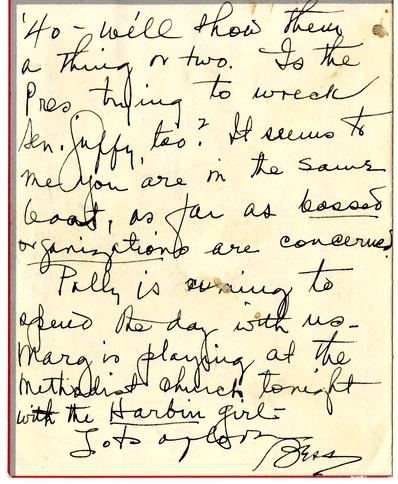 '40 - we'll show them
a thing or two. Is the
Pres trying to wreck
Sen. Guffy, too? It seems to
me you are in the same
boat, as far as bossed
organizations are concerned.
Polly is coming to
spend the day with us -
Marg is playing at the
Methodist church tonight
with the Harbin girl -
Lots of love
Bess